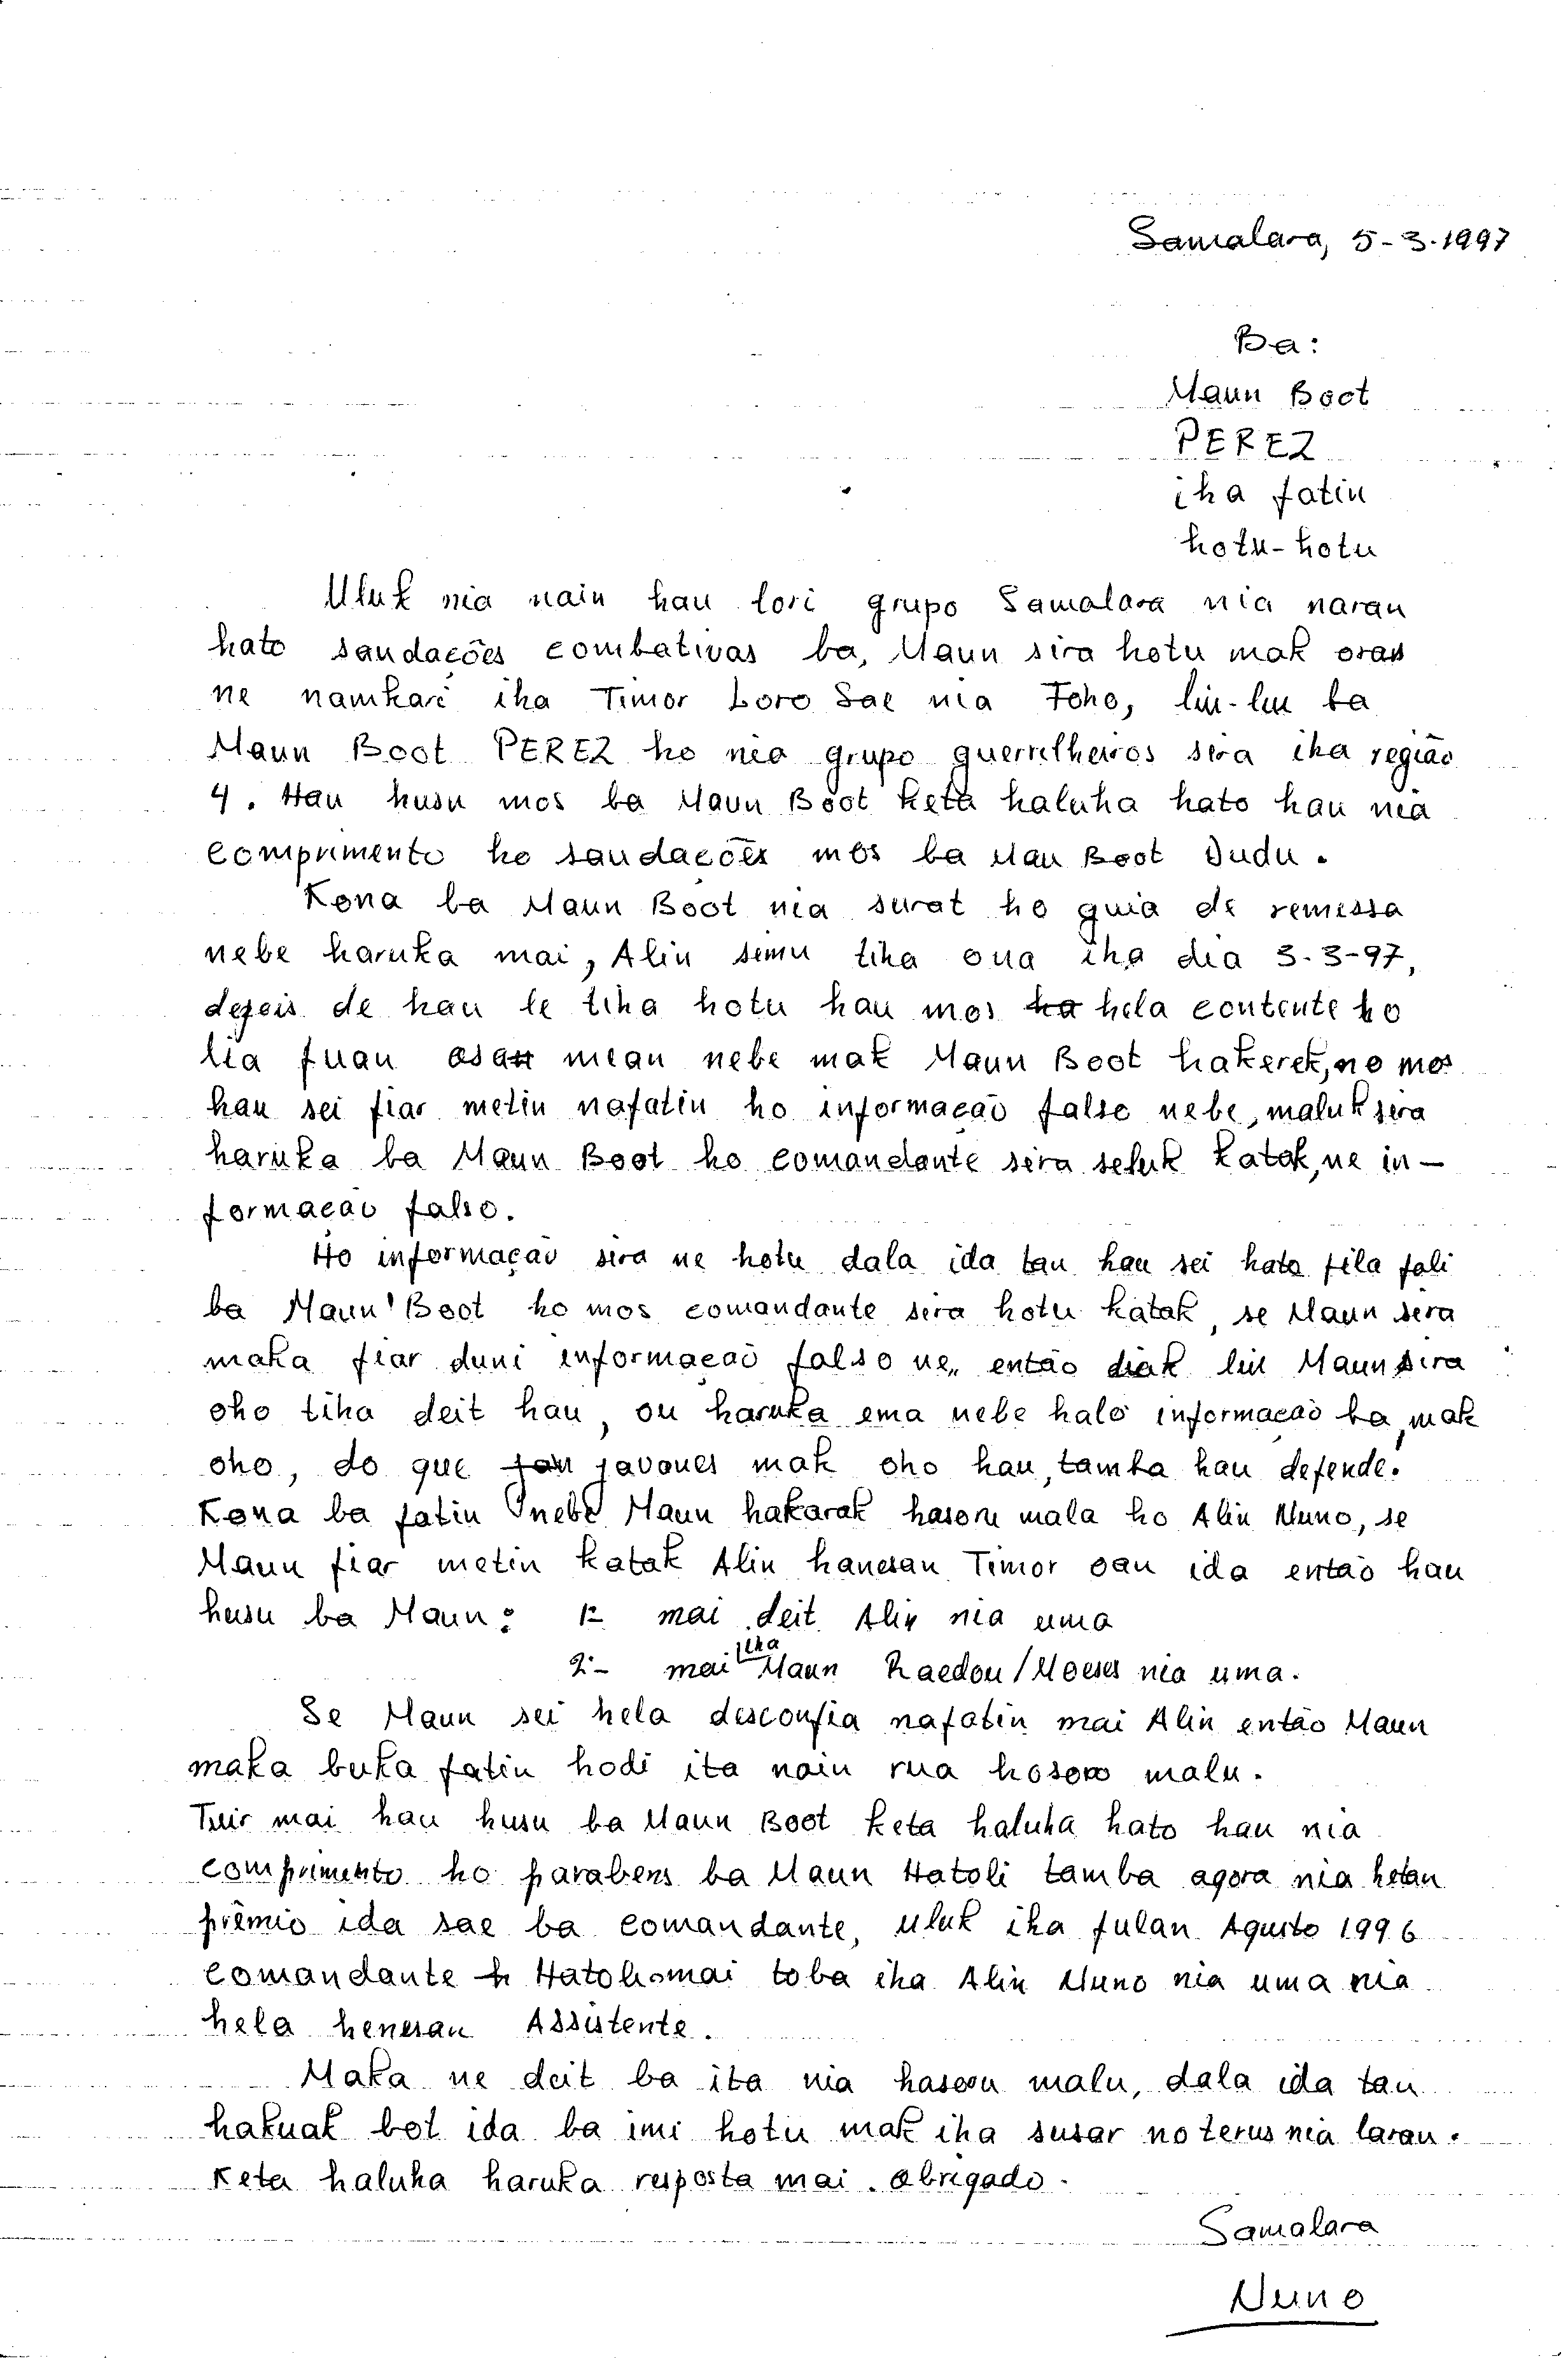 Samalara, 5-3-1997
Ba:
Maun Boot
PEREZ
iha fatin
hotu-hotu
Uluk nia nain hau lori grupo Samalara nia naran
hato saudações combativas ba, Maun sira hotu mak oras
ne namkari iha Timor Loro Sae nia Foho, liu-liu ba
Maun Boot PEREZ ho nia grupo guerrilheiros sira iha região
4. Hau husu mos ba Maun Boot keta haluha hato hau nia
comprimento ho saudações mos ba Mau Boot Dudu.
Kona ba Maun Boot nia surat ho guia de remessa
nebe haruka mai, Alin simu tiha ona iha dia 3-3-97,
depois de hau le tiha hotu hau mos hela contente ho
lia fuan osan mean nebe mak Maun Boot hakerek, no mos
hau sei fiar metin nafatin ho informação falso nebe, maluk sira
haruka ba Maun Boot ho comandante sira seluk katak, ne in-
formação falso.
Ho informação sira ne hotu dala ida tan hau sei hato fila fali
ba Maun Boot ho mos comandante sira hotu katak, se Maun sira
maka fiar duni informação falso ne, então diak liu Maun sira
oho tiha deit hau, ou haruka ema nebe halo informação ba, mak
oho, do que javanes mak oho hau, tamba hau defende.
Kona ba fatin nebe Maun hakarak hasoru mala ho Alin Nuno, se
Maun fiar metin katak Alin hanesan Timor oan ida então hau
husu ba Maun: 1- mai deit Alin nia uma
2- mai iha Maun Raedou/Moeses nia uma.
Se Maun sei hela desconfia nafatin mai Alin então Maun
maka buka fatin hodi ita nain rua hosoro malu.
Tuir mai hau husu ba Maun Boot keta haluha hato hau nia
comprimento ho parabens ba Maun Hatoli tamba agora nia hetan
prêmio ida sae ba comandante, uluk iha fulan Agusto 1996
comandante Hatoli mai toba iha Alin Nuno nia uma nia
hela henesan Assistente.
Maka ne deit ba ita nia hasoru malu, dala ida tan
hakuak bot ida ba imi hotu mak iha susar no terus nia laran.
Keta haluha haruka resposta mai. Obrigado.
Samalara
Nuno